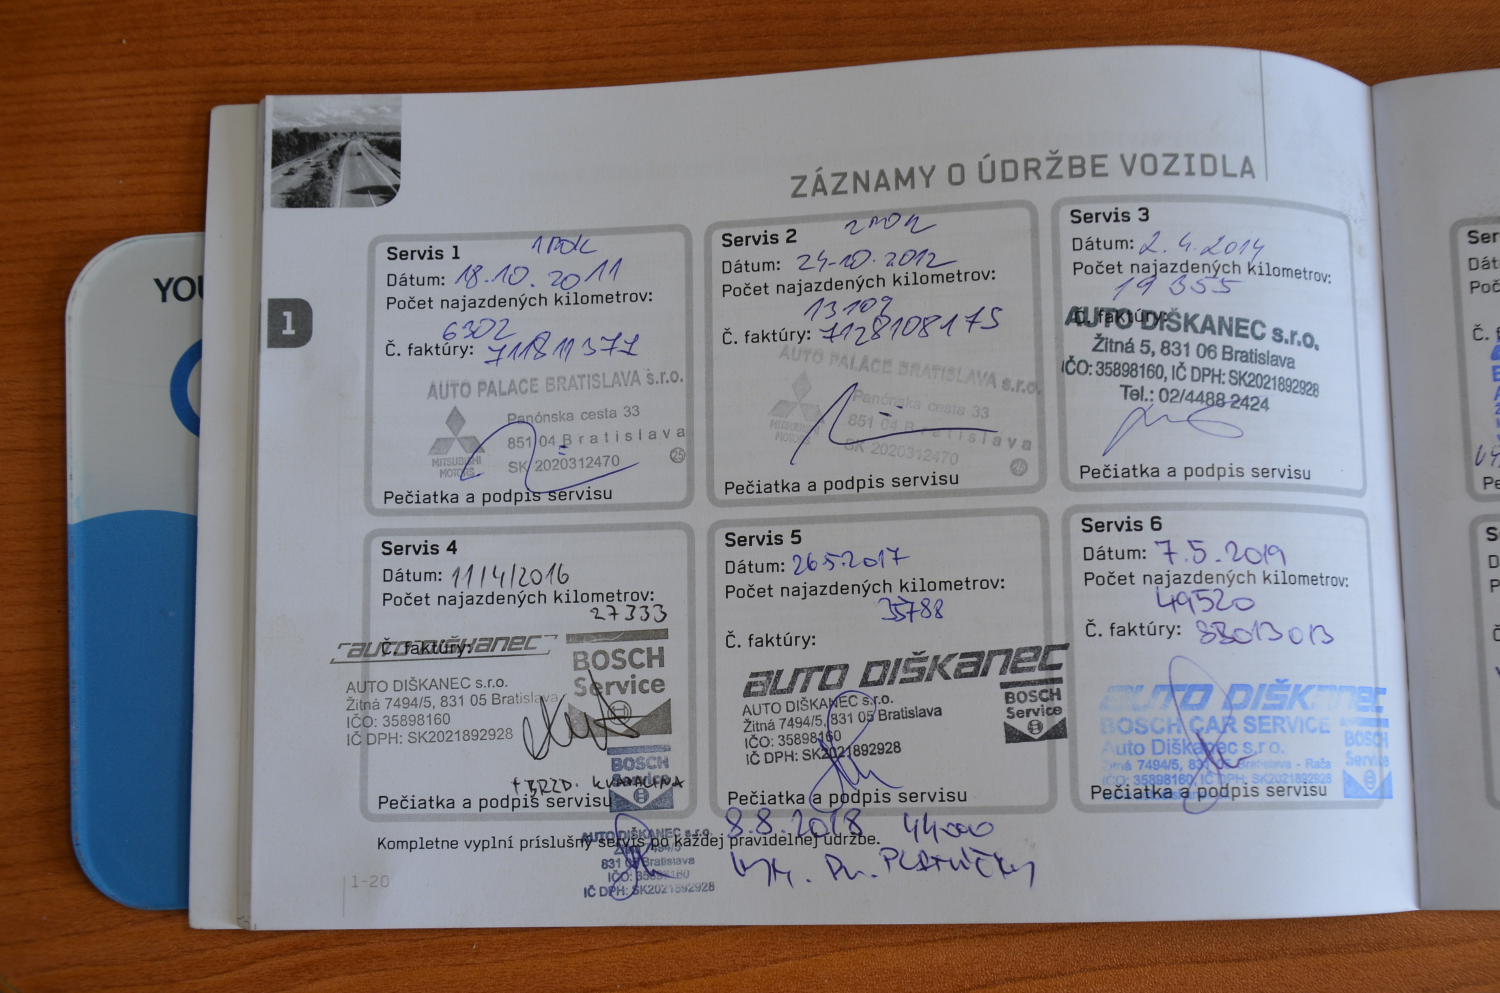 YOU
ZÁZNAMY O ÚDRŽBE VOZIDLA
1
Servis 1
1 ROK
Dátum: 18.10.2011
Počet najazdených kilometrov:
6302
Č. faktúry: 711811371
AUTO PALACE BRATISLAVA s.r.o.
Panónska cesta 33
851 04 Bratislava
SK 2020312470
25
MITSUBISHI
MOTORS
Pečiatka a podpis servisu
Servis 2
2 ROK
Dátum: 24.10.2012
Počet najazdených kilometrov:
13109
Č. faktúry: 7128108175
AUTO PALACE BRATISLAVA s.r.o.
Panónska cesta 33
851 04 Bratislava
SK 2020312470
MITSUBISHI
MOTORS
Pečiatka a podpis servisu
Servis 3
Dátum: 2.4.2014
Počet najazdených kilometrov:
19 355
Č. faktúry:
AUTO DIŠKANEC s.r.o.
Žitná 5, 831 06 Bratislava
IČO: 35898160, IČ DPH: SK2021892928
Tel.: 02/4488 2424
Pečiatka a podpis servisu
Servis 4
Dátum: 11/4/2016
Počet najazdených kilometrov:
27333
Č. faktúry:
AUTO DIŠKANEC
BOSCH
Service
AUTO DIŠKANEC s.r.o.
Žitná 7494/5, 831 05 Bratislava
IČO: 35898160
IČ DPH: SK2021892928
BOSCH
Service
+ BRZD. KVAPALINA
Pečiatka a podpis servisu
Servis 5
Dátum: 26.5.2017
Počet najazdených kilometrov:
35788
Č. faktúry:
AUTO DIŠKANEC
AUTO DIŠKANEC s.r.o.
Žitná 7494/5, 831 05 Bratislava
IČO: 35898160
IČ DPH: SK2021892928
BOSCH
Service
Pečiatka a podpis servisu
Servis 6
Dátum: 7.5.2019
Počet najazdených kilometrov:
49520
Č. faktúry: 88013013
AUTO DIŠKANEC
BOSCH CAR SERVICE
Auto Diškanec s.r.o.
Žitná 7494/5, 831 05 Bratislava - Rača
IČO: 35898160, IČ DPH: SK2021892928
BOSCH
Service
Pečiatka a podpis servisu
8.8.2018 44000
Kompletne vyplní príslušný servis po každej pravidelnej údržbe.
PLATNIČKY
AUTO DIŠKANEC s.r.o.
Žitná 7494/5
831 05 Bratislava
IČO: 35898160
IČ DPH: SK2021892928
1-20